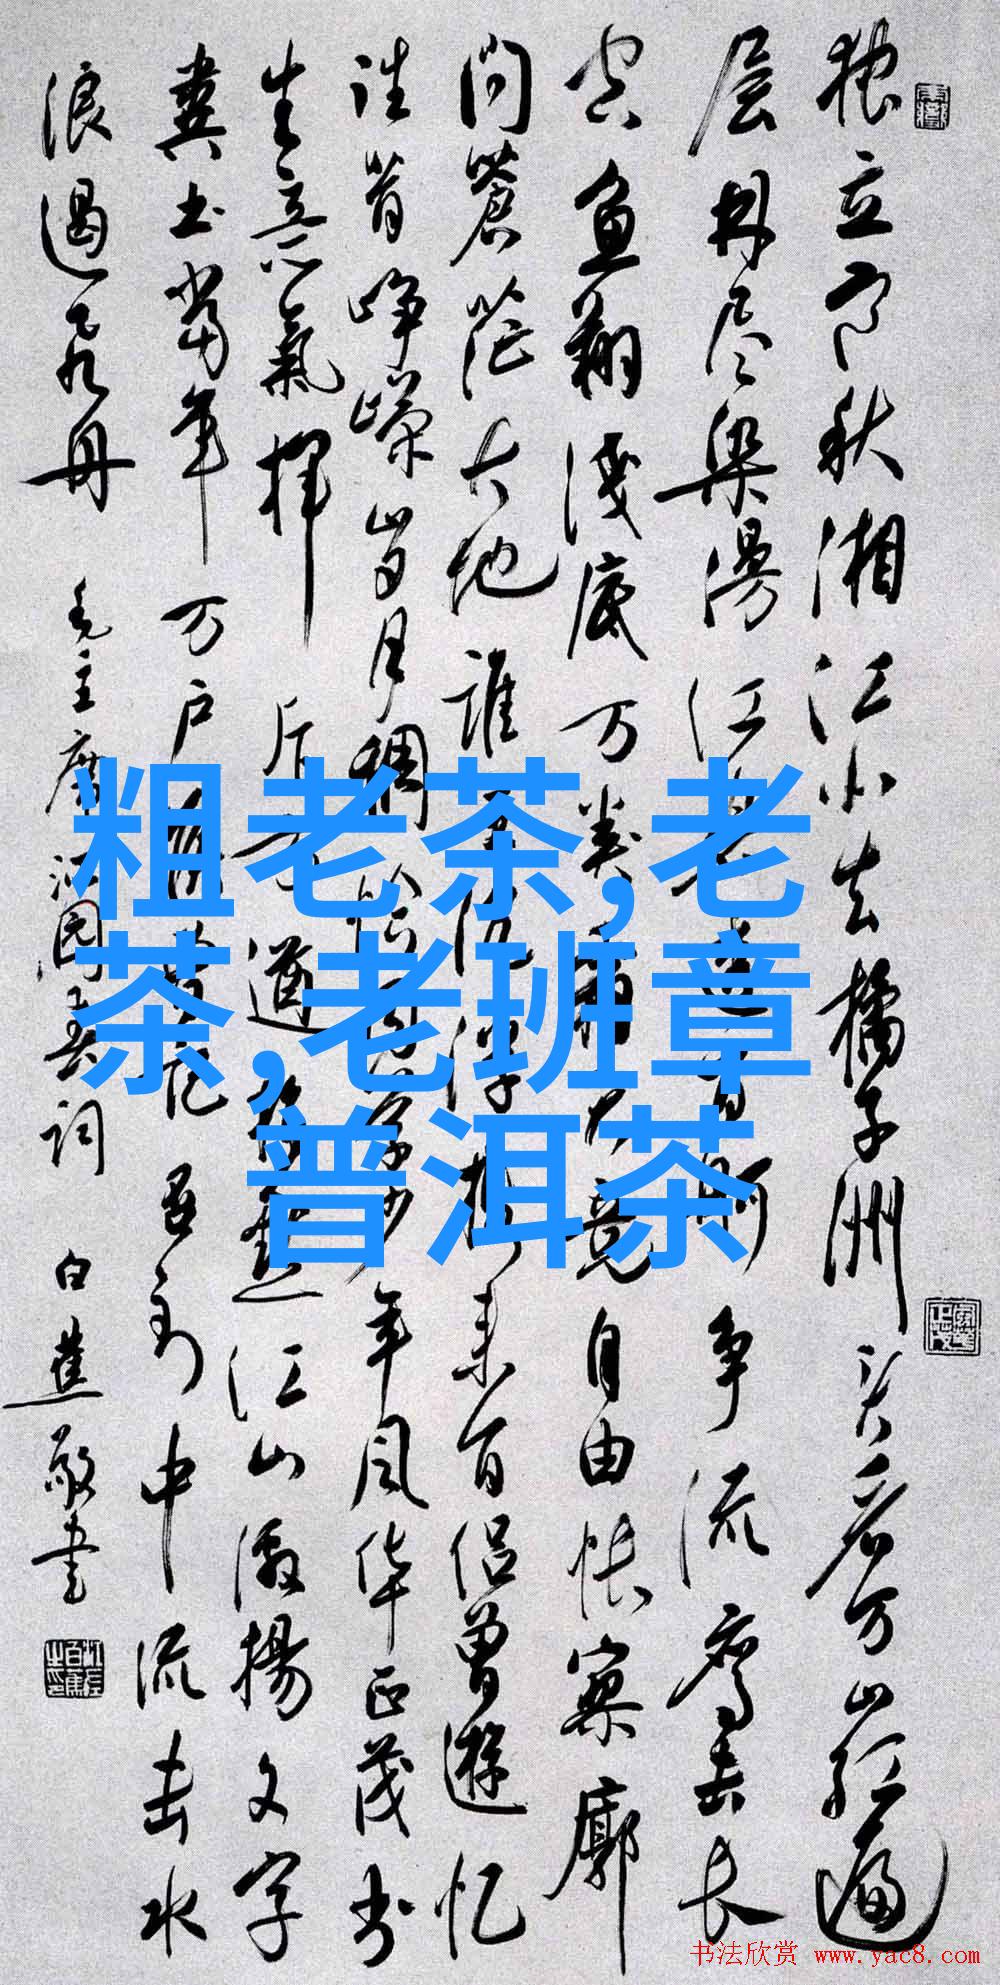 独立寒秋湘江北去橘子洲头看万山红遍
层林尽染漫江碧透百舸争流鹰击长
空鱼翔淺底万类霜天竞自由怅寥廓
问蒼茫大地誰主沉浮携来百侣曾遊忆
往昔峥嵘岁月稠恰同学少年风华正茂书
生意氣挥斥方遒指点江山激揚文字
粪土当年万户侯曾记否到中流击水
浪遏飞舟 毛主席沁园春词 白蕉敬书
粗老茶,老
茶,老班章
普洱茶
书法欣赏 www.yac8.com